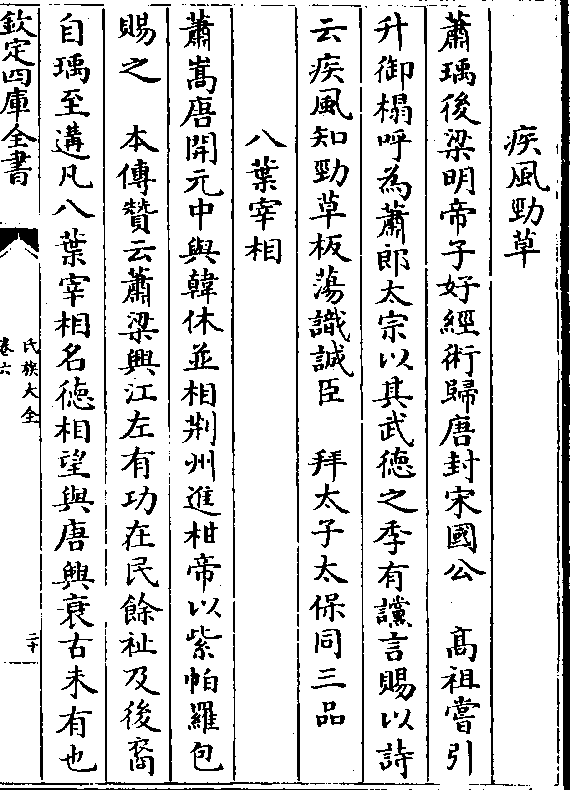 疾風勁草
蕭瑀後梁明帝子好經術歸唐封宋國公　高祖嘗引
升御榻呼為蕭郎太宗以其武德之季有讜言賜以詩
云疾風知勁草板蕩識誠臣　拜太子太保同三品
八葉宰相
蕭嵩唐開元中與韓休並相荆州進柑帝以紫帕羅包
賜之　本傳贊云蕭梁興江左有功在民餘祉及後裔
自瑀至遘凡八葉宰相名德相望與唐興衰古未有也
欽定四庫全書
氏族大全
卷六
二十